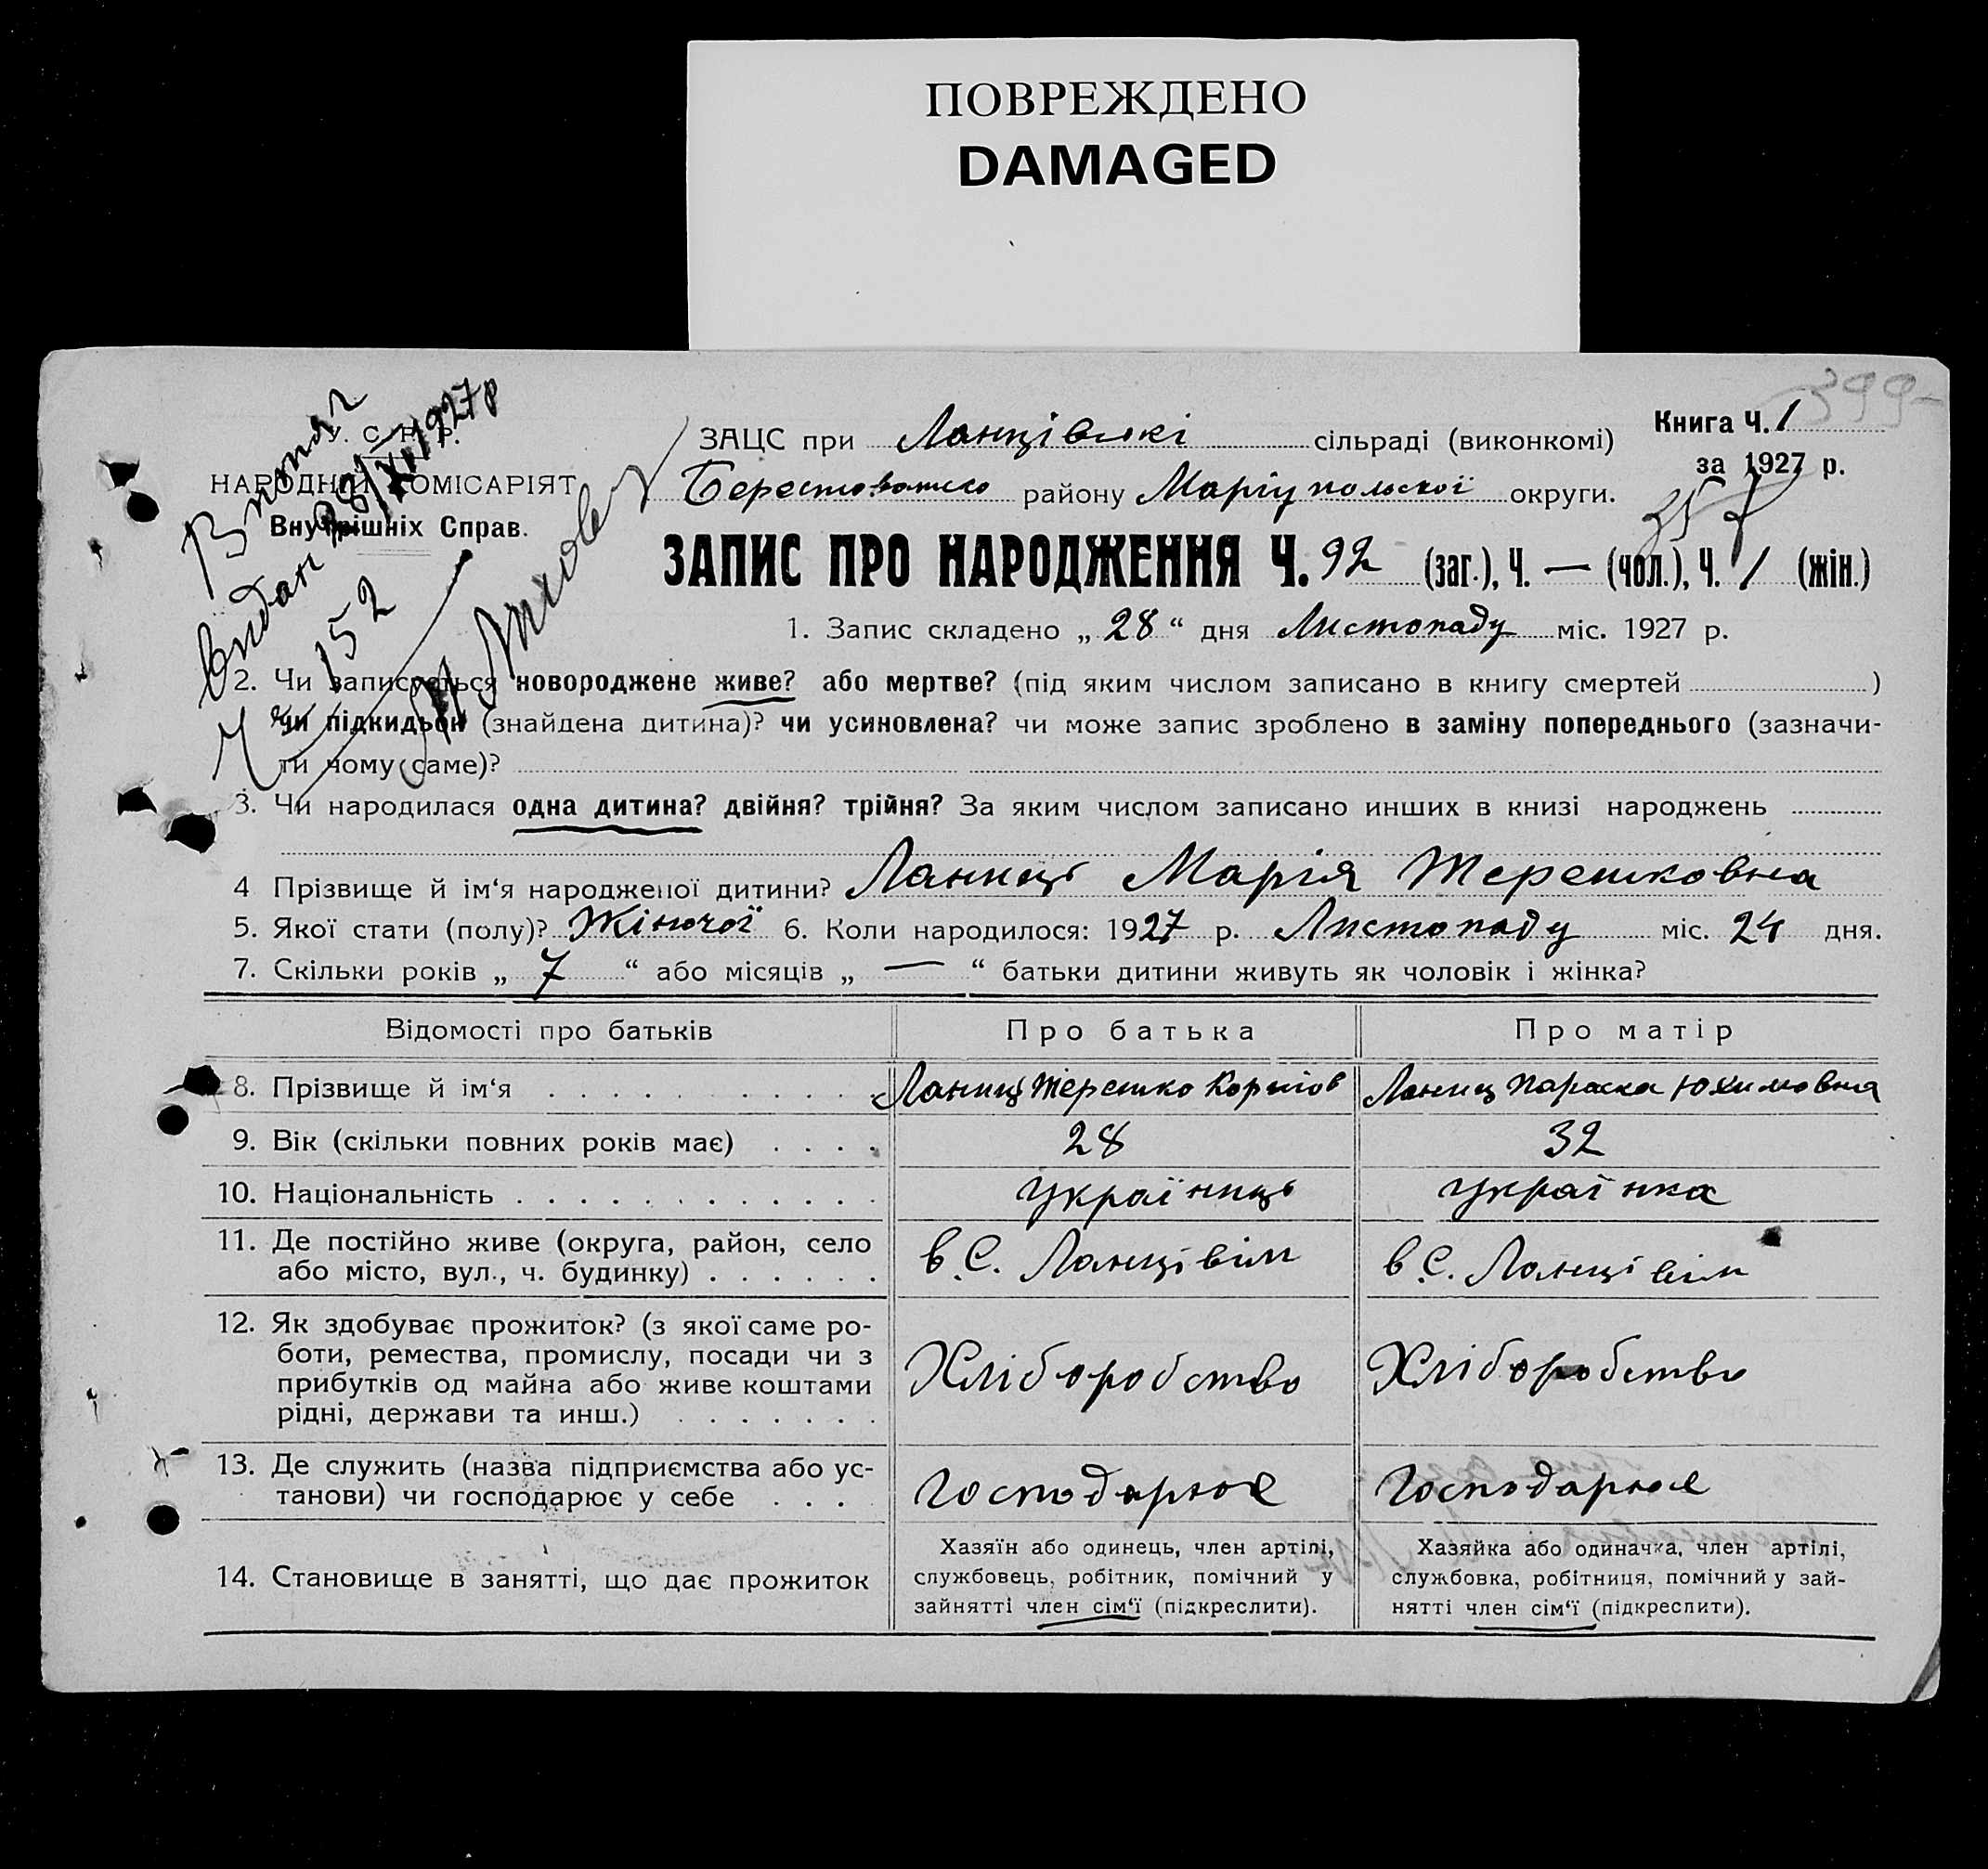 ПОВРЕЖДЕНО
DAMAGED
399
Витяг
видан 28/XII 1927р
Ч 152
У. С. Р. Р.
НАРОДНІЙ КОМІСАРІЯТ
Внутрішніх Справ.
ЗАЦС при Ланцівскі сільраді (виконкомі)
Книга Ч. 1
за 1927 р.
району Маріупольскої округи.
357
ЗАПИС ПРО НАРОДЖЕННЯ Ч. 92 (заг.), Ч. — (чол.), Ч. 1 (жін.)
1. Запис складено „ 28 “ дня Листопаду міс. 1927 р.
2. Чи записується новороджене живе? або мертве? (під яким числом записано в книгу смертей )
чи підкидьок (знайдена дитина)? чи усиновлена? чи може запис зроблено в заміну попереднього (зазначи-
ти чому саме)?
3. Чи народилася одна дитина? двійня? трійня? За яким числом записано инших в книзі народжень
4 Прізвище й ім‘я народженої дитини? Ланиць Марія Терешковна
5. Якої стати (полу)? Жіночої 6. Коли народилося: 1927 р. Листопаду міс. 24 дня.
7. Скільки років „ 7 “ або місяців „ — “ батьки дитини живуть як чоловік і жінка?
Відомості про батьків Про батька Про матір
8. Прізвище й ім‘я . . . . . . . . . . Ланиц Терешко Корнїов Ланиц Параска Юхимовна
9. Вік (скільки повних років має) . . . . 28 32
10. Національність . . . . . . . . . . . . . україниць українка
11. Де постійно живе (округа, район, село
або місто, вул., ч. будинку) . . . . . . в С. Ланцівім в С. Ланцівім
12. Як здобуває прожиток? (з якої саме ро-
боти, ремества, промислу, посади чи з
прибутків од майна або живе коштами
рідні, держави та инш.) . . . . . . . Хліборобство Хліборобство
13. Де служить (назва підприємства або ус-
танови) чи господарює у себе . . . . Господарюе Господарюе
14. Становище в занятті, що дає прожиток
Хазяїн або одинець, член артілі,
службовець, робітник, помічний у
зайнятті член сім‘ї (підкреслити).
Хазяйка або одиначка, член артілі,
службовка, робітниця, помічний у зай-
нятті член сім‘ї (підкреслити).